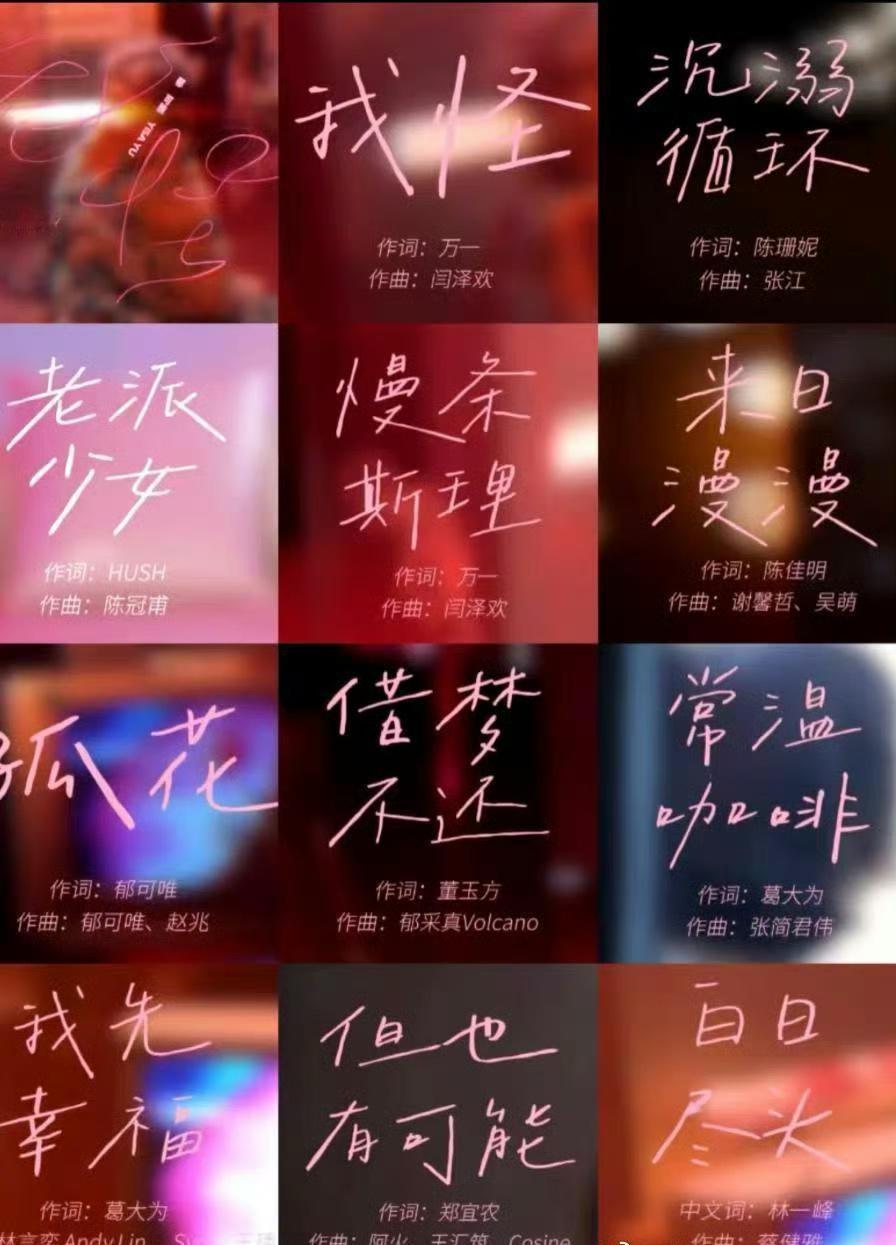 我怪
YISA YU
我怪
作词：万一
作曲：闫泽欢
沉溺
循环
作词：陈珊妮
作曲：张江
老派
少女
作词：HUSH
作曲：陈冠甫
慢条
斯理
作词：万一
作曲：闫泽欢
来日
漫漫
作词：陈佳明
作曲：谢馨哲、吴萌
孤花
作词：郁可唯
作曲：郁可唯、赵兆
借梦
不还
作词：董玉方
作曲：郁采真Volcano
常温
咖啡
作词：葛大为
作曲：张简君伟
我先
幸福
作词：葛大为
林言奕 Andy Lin
但也
有可能
作词：郑宜农
作曲：阿火、王汇筑、Cosine
白日
尽头
中文词：林一峰
作曲：蔡健雅